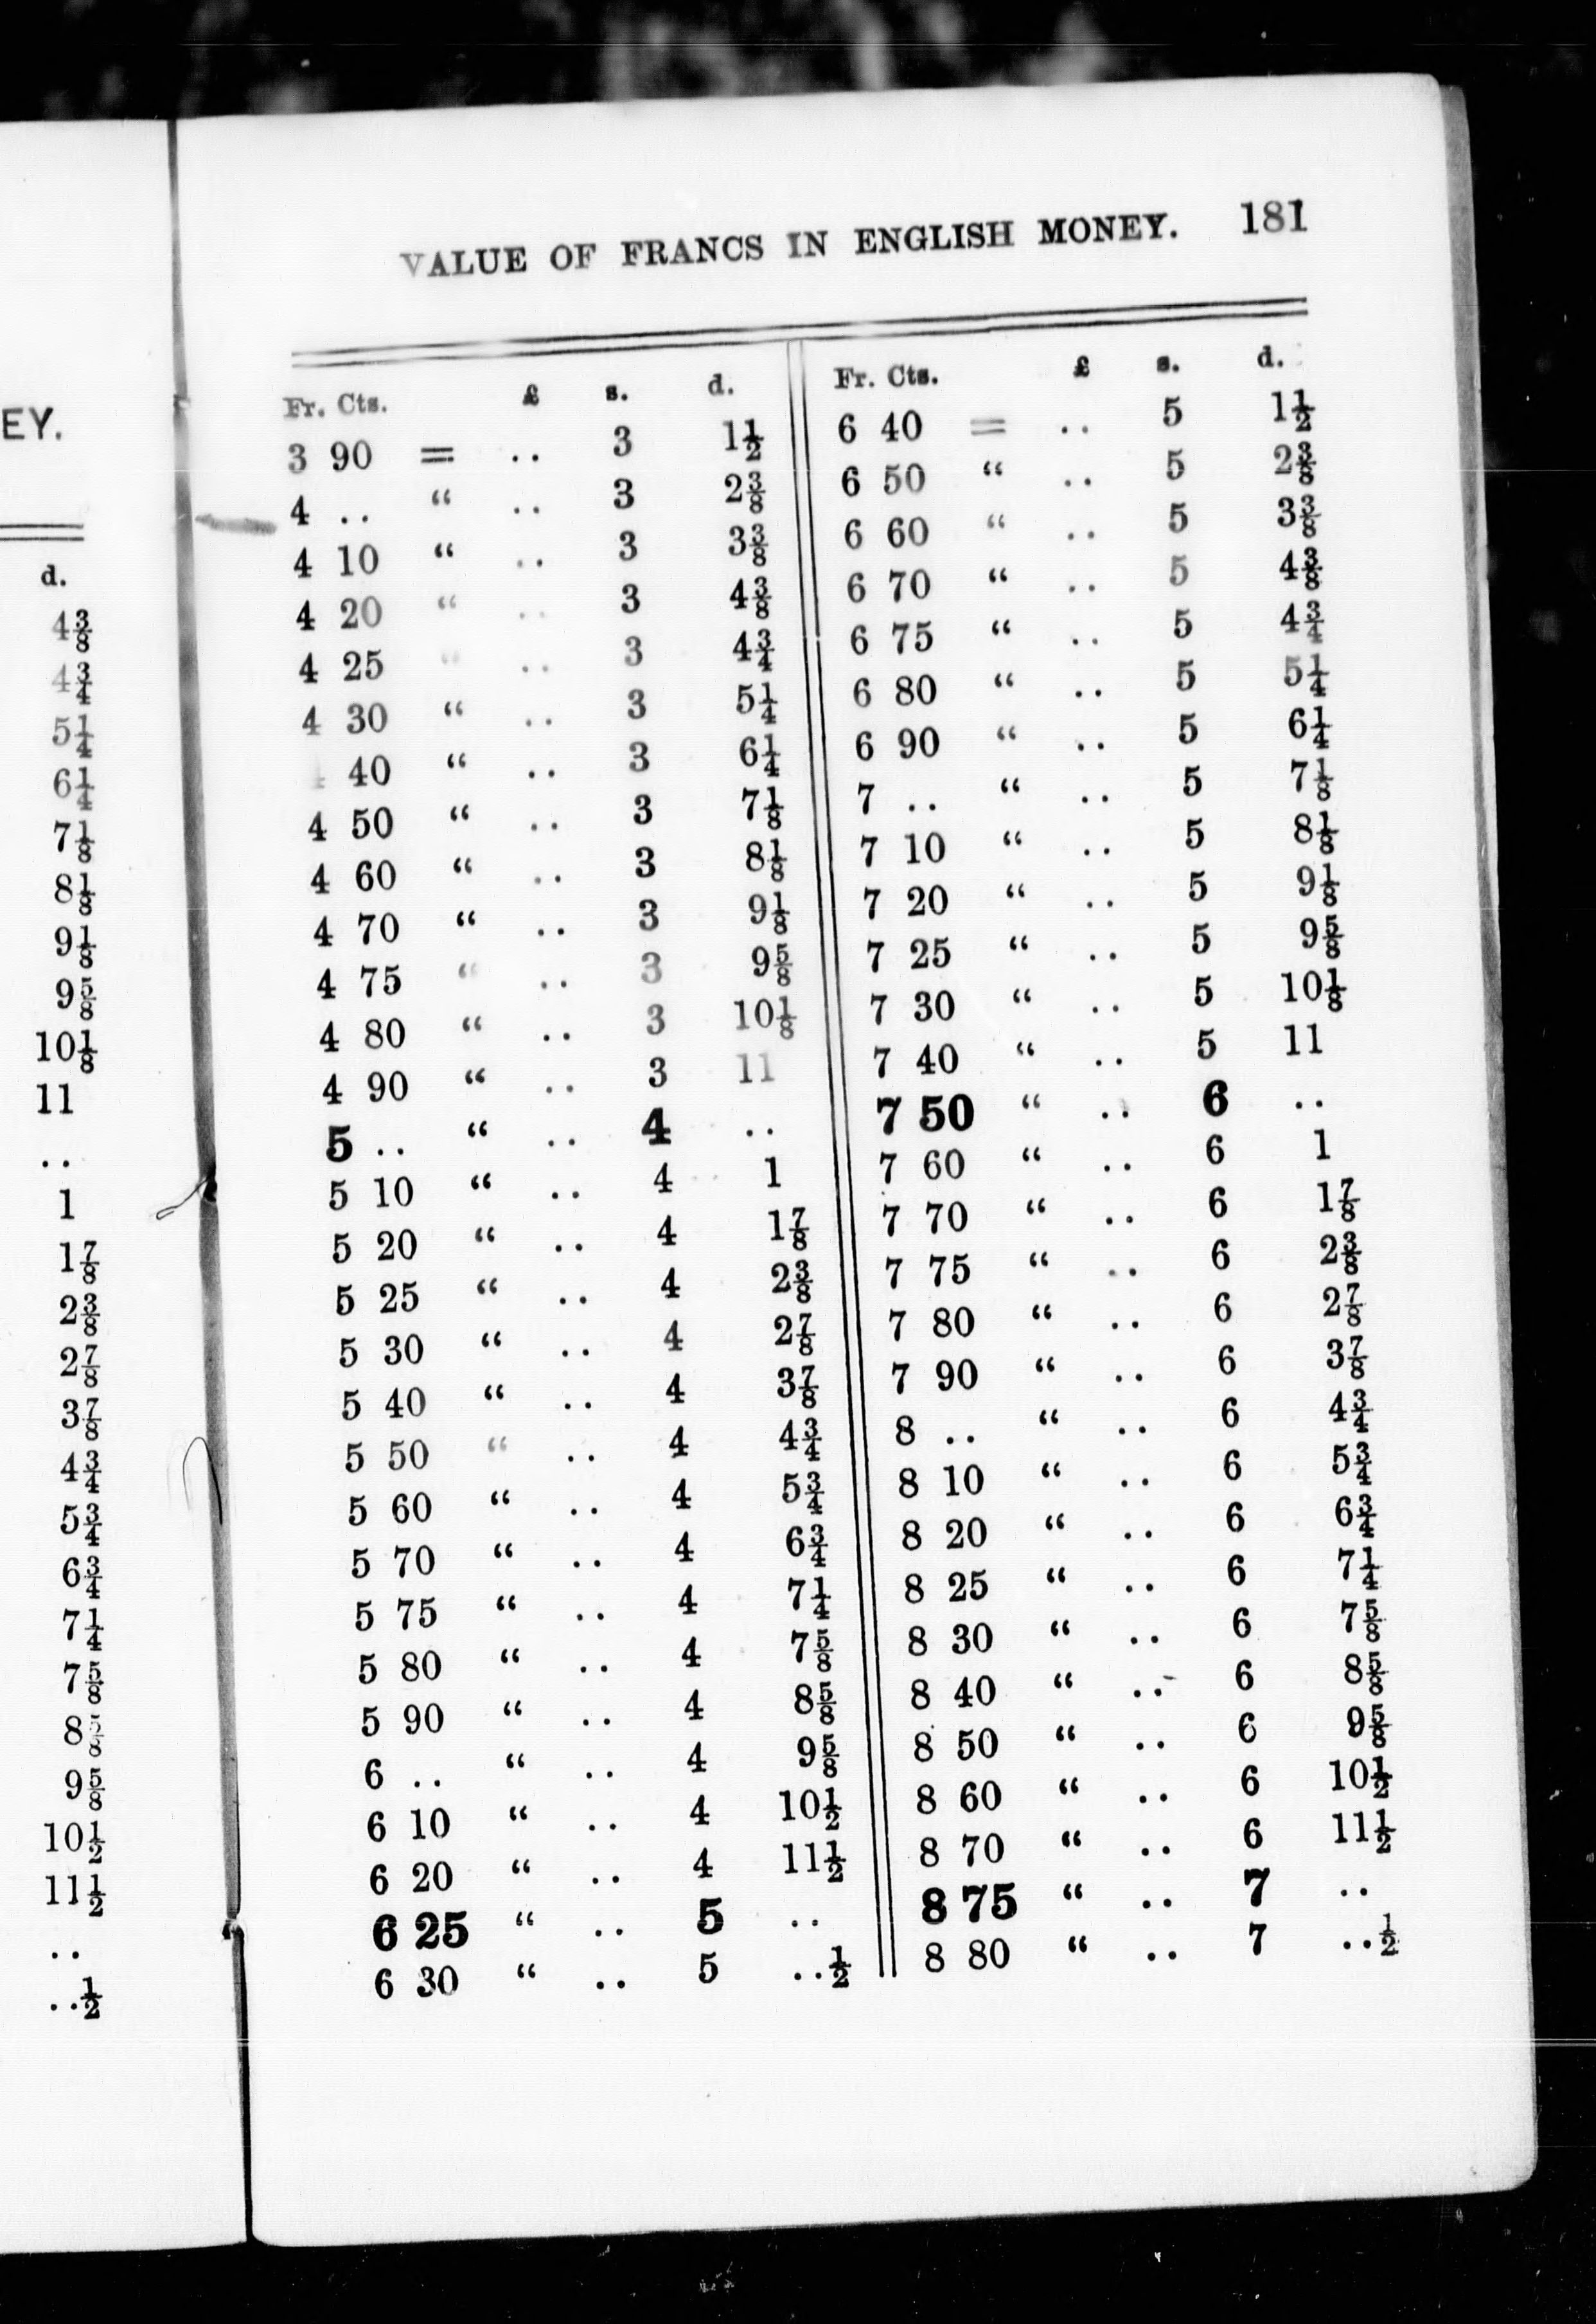 EY.
d.
4⅜
4¾
5¼
6¼
7⅛
8⅛
9⅛
9⅝
10⅛
11
..
1
1⅞
2⅜
2⅞
3⅞
4¾
5¾
6¾
7¼
7⅝
8⅝
9⅝
10½
11½
..
..½
VALUE OF FRANCS IN ENGLISH MONEY. 181
Fr. Cts. £ s. d.
3 90 = .. 3 1½
4 .. “ .. 3 2⅜
4 10 “ .. 3 3⅜
4 20 “ .. 3 4⅜
4 25 “ .. 3 4¾
4 30 “ .. 3 5¼
4 40 “ .. 3 6¼
4 50 “ .. 3 7⅛
4 60 “ .. 3 8⅛
4 70 “ .. 3 9⅛
4 75 “ .. 3 9⅝
4 80 “ .. 3 10⅛
4 90 “ .. 3 11
5 .. “ .. 4 ..
5 10 “ .. 4 1
5 20 “ .. 4 1⅞
5 25 “ .. 4 2⅜
5 30 “ .. 4 2⅞
5 40 “ .. 4 3⅞
5 50 “ .. 4 4¾
5 60 “ .. 4 5¾
5 70 “ .. 4 6¾
5 75 “ .. 4 7¼
5 80 “ .. 4 7⅝
5 90 “ .. 4 8⅝
6 .. “ .. 4 9⅝
6 10 “ .. 4 10½
6 20 “ .. 4 11½
6 25 “ .. 5 ..
6 30 “ .. 5 ..½
Fr. Cts. £ s. d.
6 40 = .. 5 1½
6 50 “ .. 5 2⅜
6 60 “ .. 5 3⅜
6 70 “ .. 5 4⅜
6 75 “ .. 5 4¾
6 80 “ .. 5 5¼
6 90 “ .. 5 6¼
7 .. “ .. 5 7⅛
7 10 “ .. 5 8⅛
7 20 “ .. 5 9⅛
7 25 “ .. 5 9⅝
7 30 “ .. 5 10⅛
7 40 “ .. 5 11
7 50 “ .. 6 ..
7 60 “ .. 6 1
7 70 “ .. 6 1⅞
7 75 “ .. 6 2⅜
7 80 “ .. 6 2⅞
7 90 “ .. 6 3⅞
8 .. “ .. 6 4¾
8 10 “ .. 6 5¾
8 20 “ .. 6 6¾
8 25 “ .. 6 7¼
8 30 “ .. 6 7⅝
8 40 “ .. 6 8⅝
8 50 “ .. 6 9⅝
8 60 “ .. 6 10½
8 70 “ .. 6 11½
8 75 “ .. 7 ..
8 80 “ .. 7 ..½